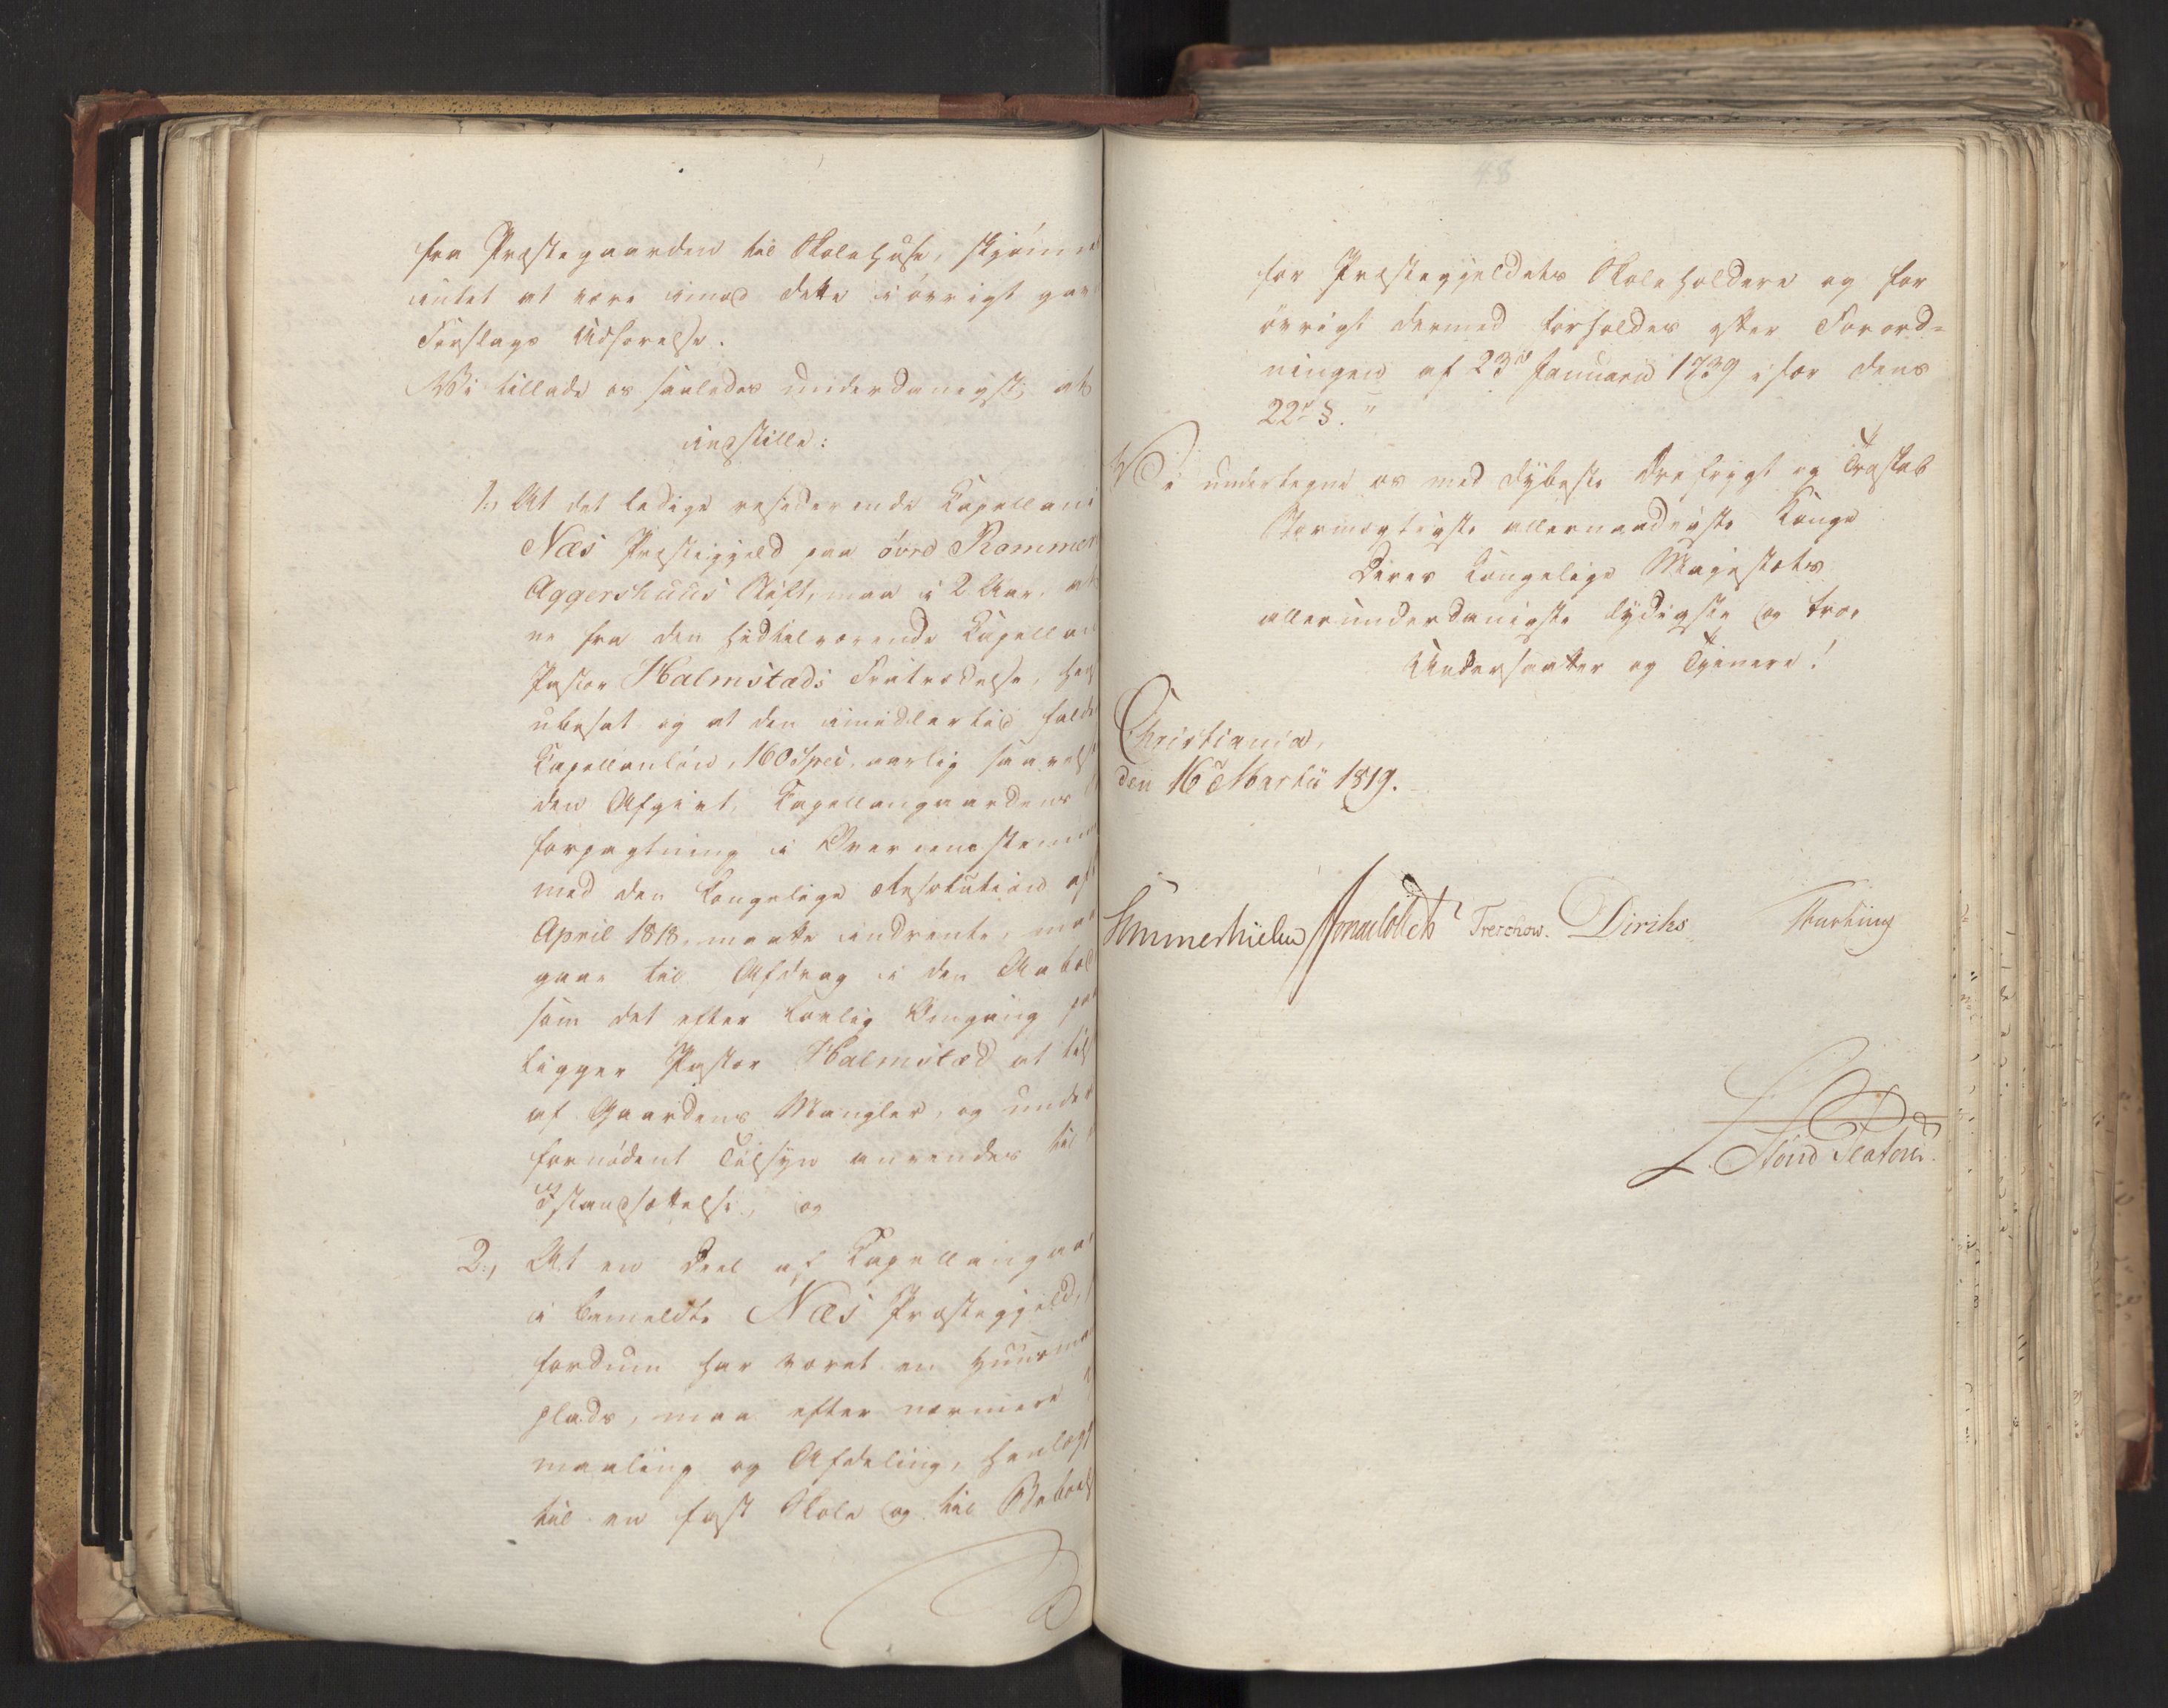 fra Præstegaarden til Skolehuse, skjønne
intet at være imod dette i øvrigt gav
Forslags Udførelse.
Vi tillade os saaledes underdanigst, at
indstille:
1, At det ledige residerende Capellani
Næs Præstegjeld paa øvre Rommer
Aggershuus Stift, maa i 2 Aar, at
ne fra den hidtilværende Capellan
Pastor Halmstads Fratrædelse, hen
ubesat og at den imidlertid fald
Capellanløn, 160 Spec. aarlig saavel
den Afgivt, Capellangaardens
forpagtning i Overeenstem
med den Kongelige Resolution af
April 1818, maatte indvente, maa
gaae til Afdrag i den Aabod
som det efter lovlig Omgang paa
ligger Pastor Halmstad at til
af Gaardens Mangler, og under
fornødent Tilsyn anvendes til
Istandsættelse, og
2, At en Deel af Capellangaar
i bemeldte Næs Præstegjeld,
fordum har været en Huusma
plads, maa efter nærmere
maaling og Afdeling, henlægg
til en fast Skole og til Beboels
48
for Præstegjeldets Skoleholdere og for
øvrigt dermed forholdes efter Forord-
ningen af 23de Januarii 1739 især dens
22d §. "
Vi undertegne os med dybeste Ærefrygt og Troskab
Stormægtigste allernaadigste Konge
Deres Kongelige Majestæts
allerunderdanigste lydigste og troe
Undersaatter og Tjenere!
Christiania,
den 16 Martii 1819.
Sommerhielm Treschow. Diriks